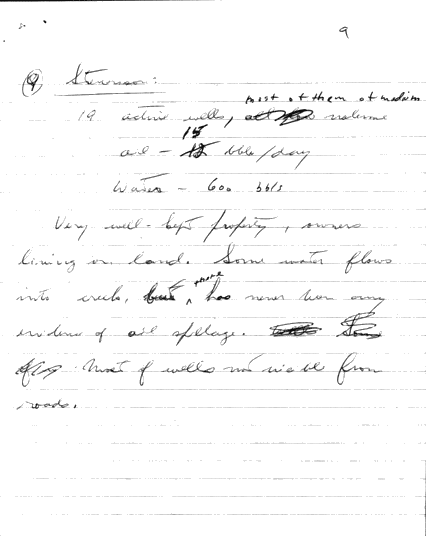 9
9 Stevenson:
most of them at medium
19 active wells, volume
15
oil - bbls/day
Water - 600 bbls
Very well-kept property, owners
living on land. Some water flows
there
into creek, but has never been any
evidence of oil spillage. Some
Most of wells not visible from
roads.